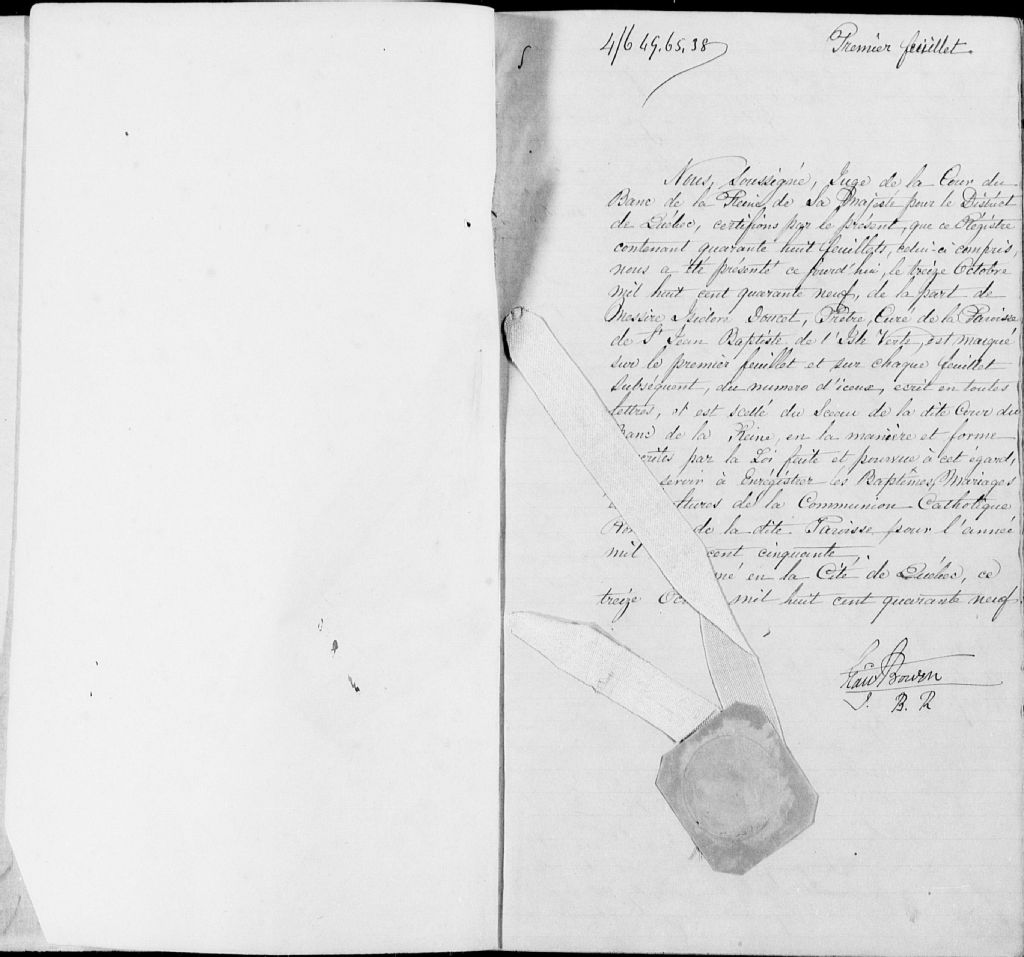 4/6 49.65.38
Premier feuillet.
Nous, Soussigné, Juge de la Cour du
Banc de la Reine de Sa Majesté pour le District
de Québec, certifions par le présent, que ce Régistre
contenant quarante huit feuillets, celui-ci compris,
nous a été présenté ce jourd'hui, le treize Octobre
mil huit cent quarante neuf, de la part de
Messire Isidore Doucet, Prêtre, Curé de la Paroisse
de St Jean Baptiste de l'Isle Verte, est marqué
sur le premier feuillet et sur chaque feuillet
subséquent, du numero d'iceux, ecrit en toutes
lettres, et est scellé du Sceau de la dite Cour du
Banc de la Reine, en la manière et forme
crites par la Loi faite et pourvue à cet égard,
servir à Enrégistrer les Baptêmes, Mariages
ltures de la Communion Catholique
de la dite Paroisse pour l'année
mil cent cinquante,
né en la Cité de Québec, ce
treize Oc mil huit cent quarante neuf.
Bowen
J. B. R